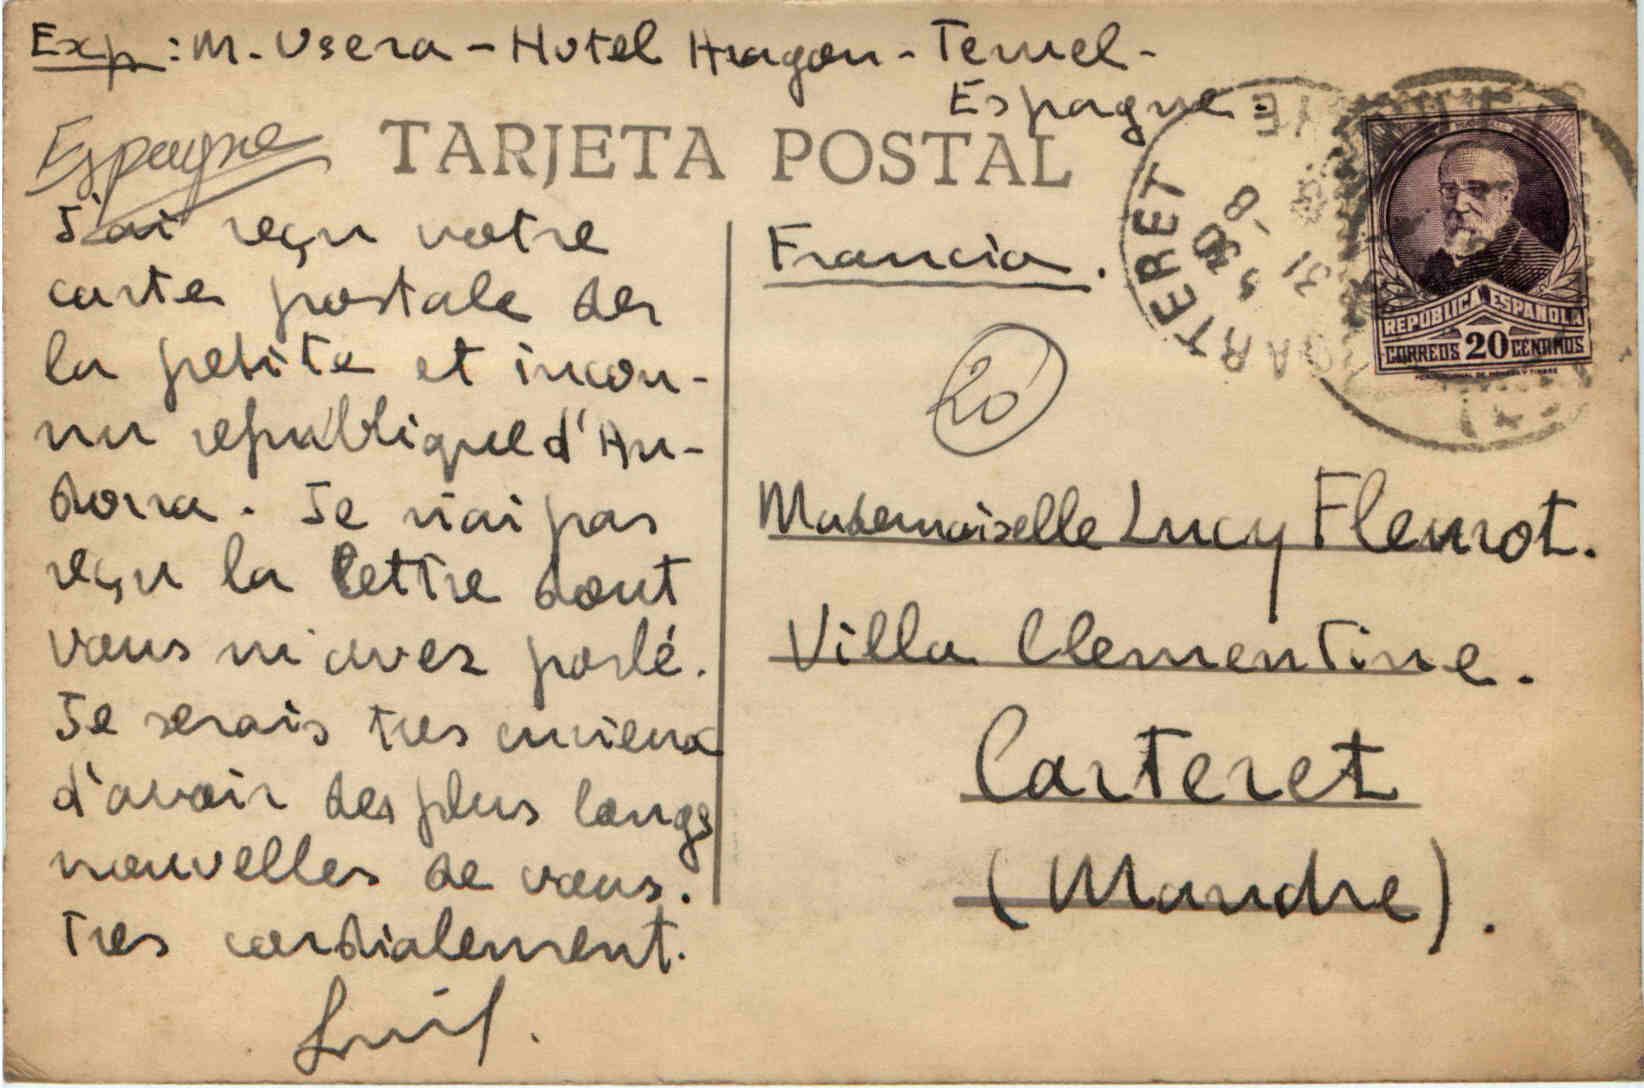 Exp: M. Usera - Hotel Aragon - Teruel -
Espagne.
Espagne
TARJETA POSTAL
J'ai reçu votre
carte postale de
la petite et incon-
nu republique d'An-
dorra. Je n'ai pas
reçu la lettre dont
vous m'avez parlé.
Je serais tres curieux
d'avoir des plus longs
nouvelles de vous.
Tres cordialement.
Luis.
Francia.
20
Mademoiselle Lucy Fleurot.
Villa Clementine.
Carteret
(Manche).
CARTERET
31
-8
REPUBLICA ESPAÑOLA
CORREOS 20 CENTIMOS